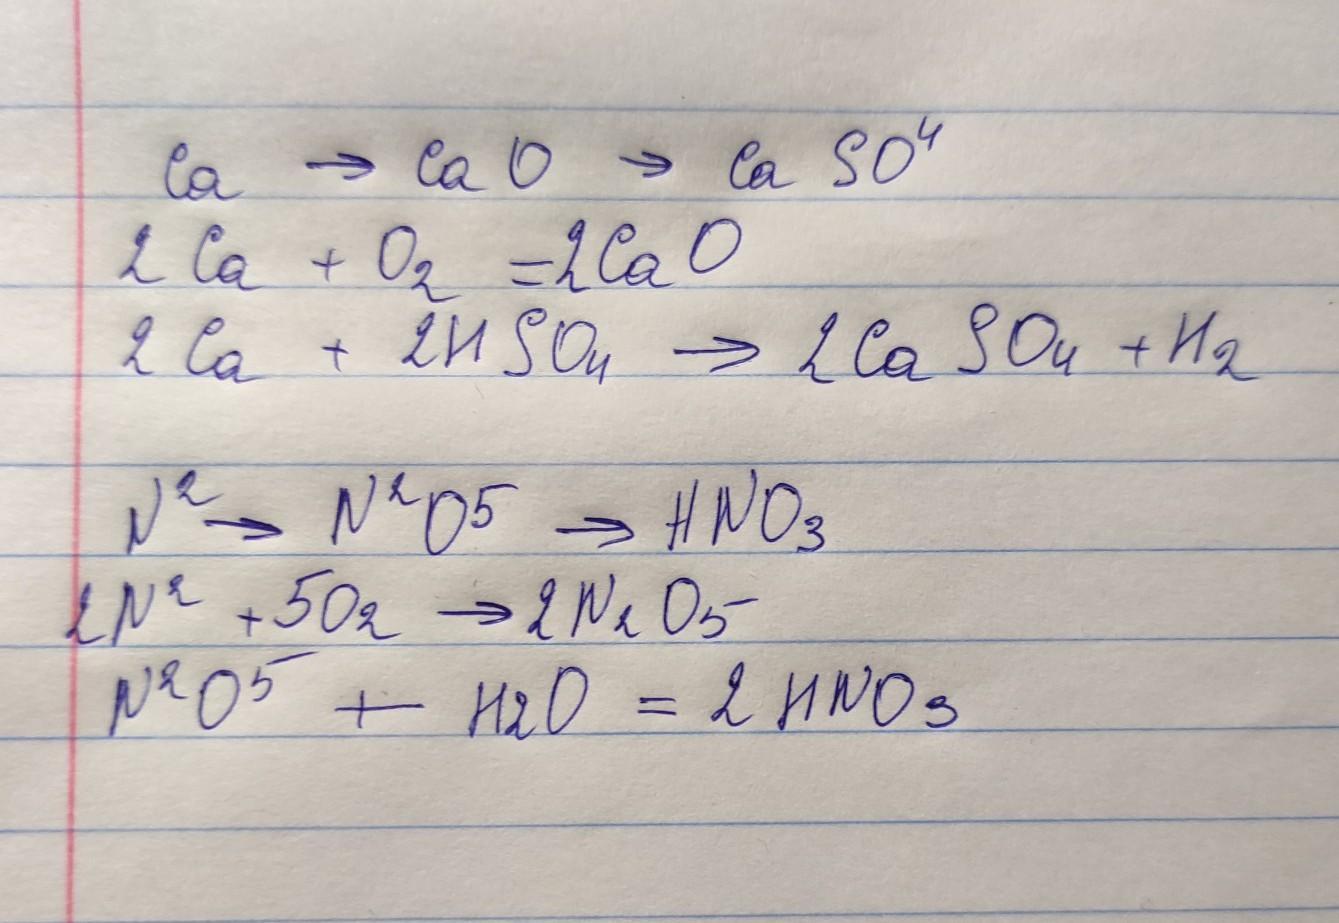 Ca → CaO → CaSO⁴
2Ca + O₂ = 2CaO
2Ca + 2HSO₄ → 2CaSO₄ + H₂
N² → N²O⁵ → HNO₃
2N² + 5O₂ → 2N₂O₅
N²O⁵ + H₂O = 2HNO₃